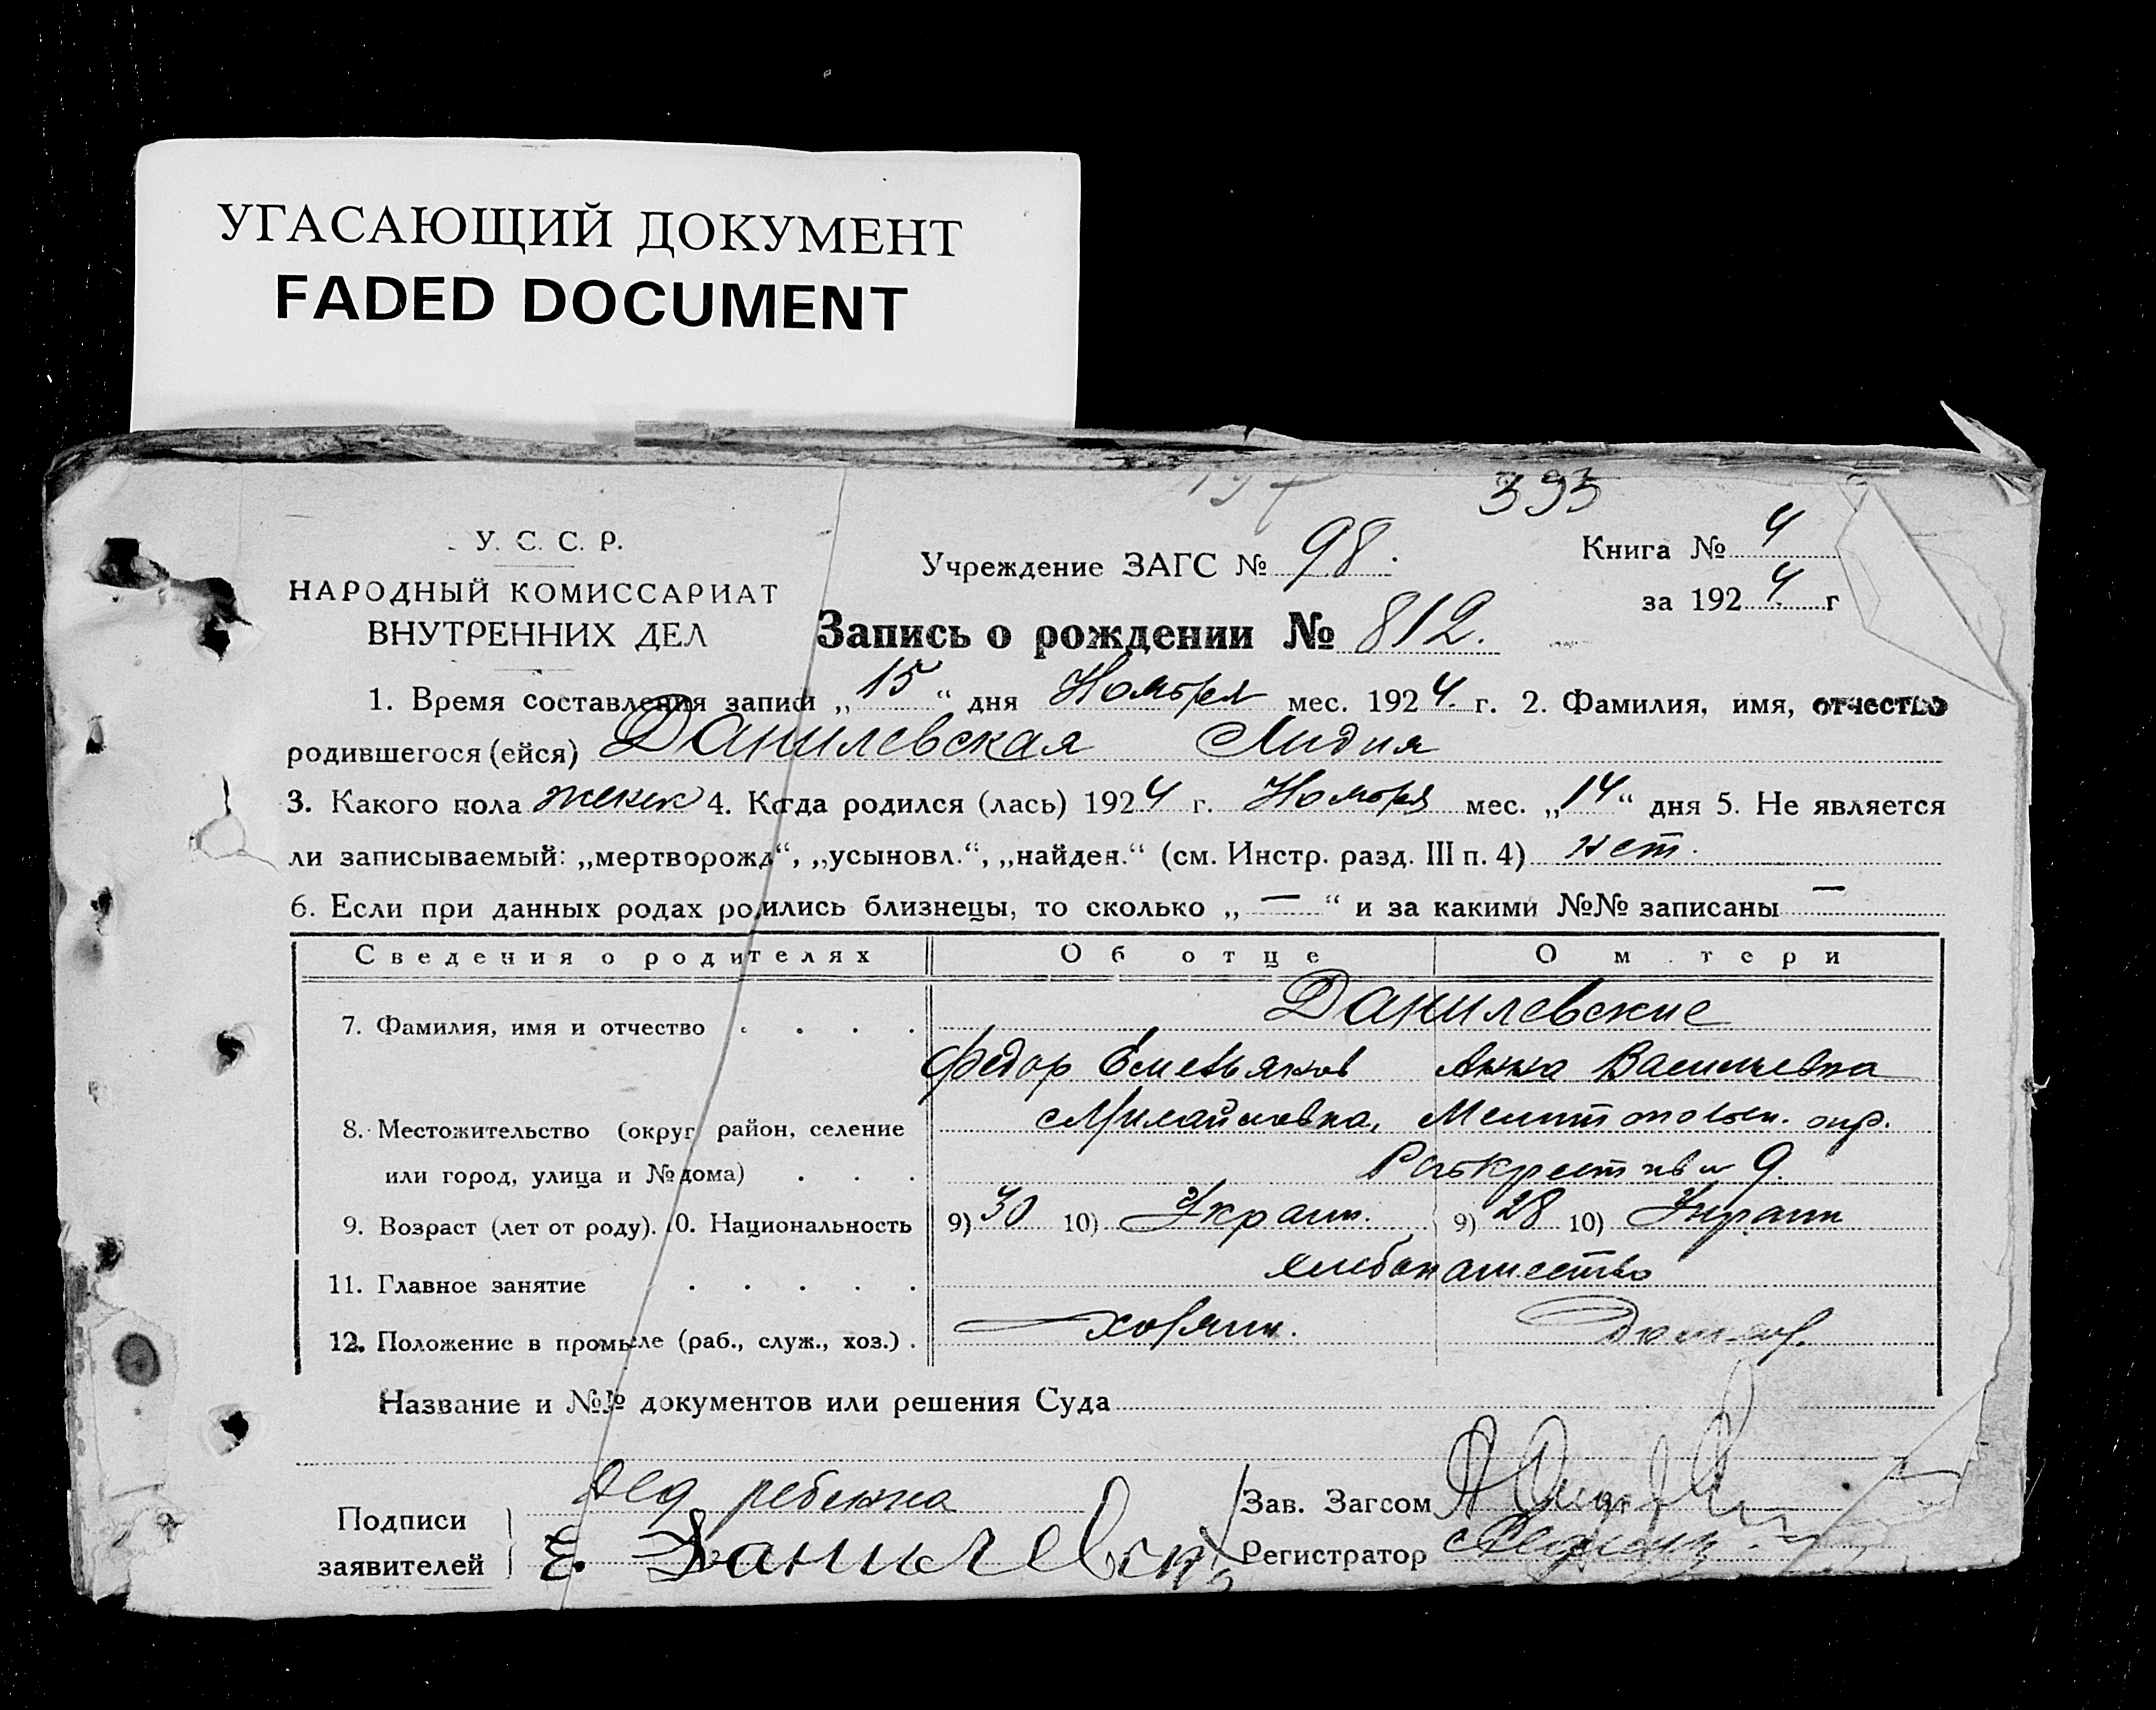 УГАСАЮЩИЙ ДОКУМЕНТ
FADED DOCUMENT
393
У. С. С. Р.
НАРОДНЫЙ КОМИССАРИАТ
ВНУТРЕННИХ ДЕЛ
Учреждение ЗАГС № 98.
Книга № 4
за 1924 г
Запись о рождении № 812.
1. Время составления записи „15“ дня Ноября мес. 1924. г. 2. Фамилия, имя, отчество
родившегося (ейся) Данилевская Лидия
3. Какого пола женск 4. Когда родился (лась) 1924 г. Ноября мес. „14“ дня 5. Не является
ли записываемый: „мертворожд“, „усыновл.“, „найден.“ (см. Инстр. разд. III п. 4) нет.
6. Если при данных родах родились близнецы, то сколько „ — “ и за какими №№ записаны —
Сведения о родителях Об отце О м тери
Данилевские
7. Фамилия, имя и отчество . . . .
Федор Емельянов Анна Васильевна
8. Местожительство (округ, район, селение Мелитопольск. окр.
или город, улица и № дома) . . . 9.
9. Возраст (лет от роду). 10. Национальность 9) 30 10) Украин. 9) 28 10) Украин
11. Главное занятие . . . . . хлебопашество
12. Положение в промысле (раб., служ., хоз.) . хозяин.
Название и №№ документов или решения Суда
Подписи
заявителей
дед ребенка
Е. Данилевский
Зав. Загсом
Регистратор